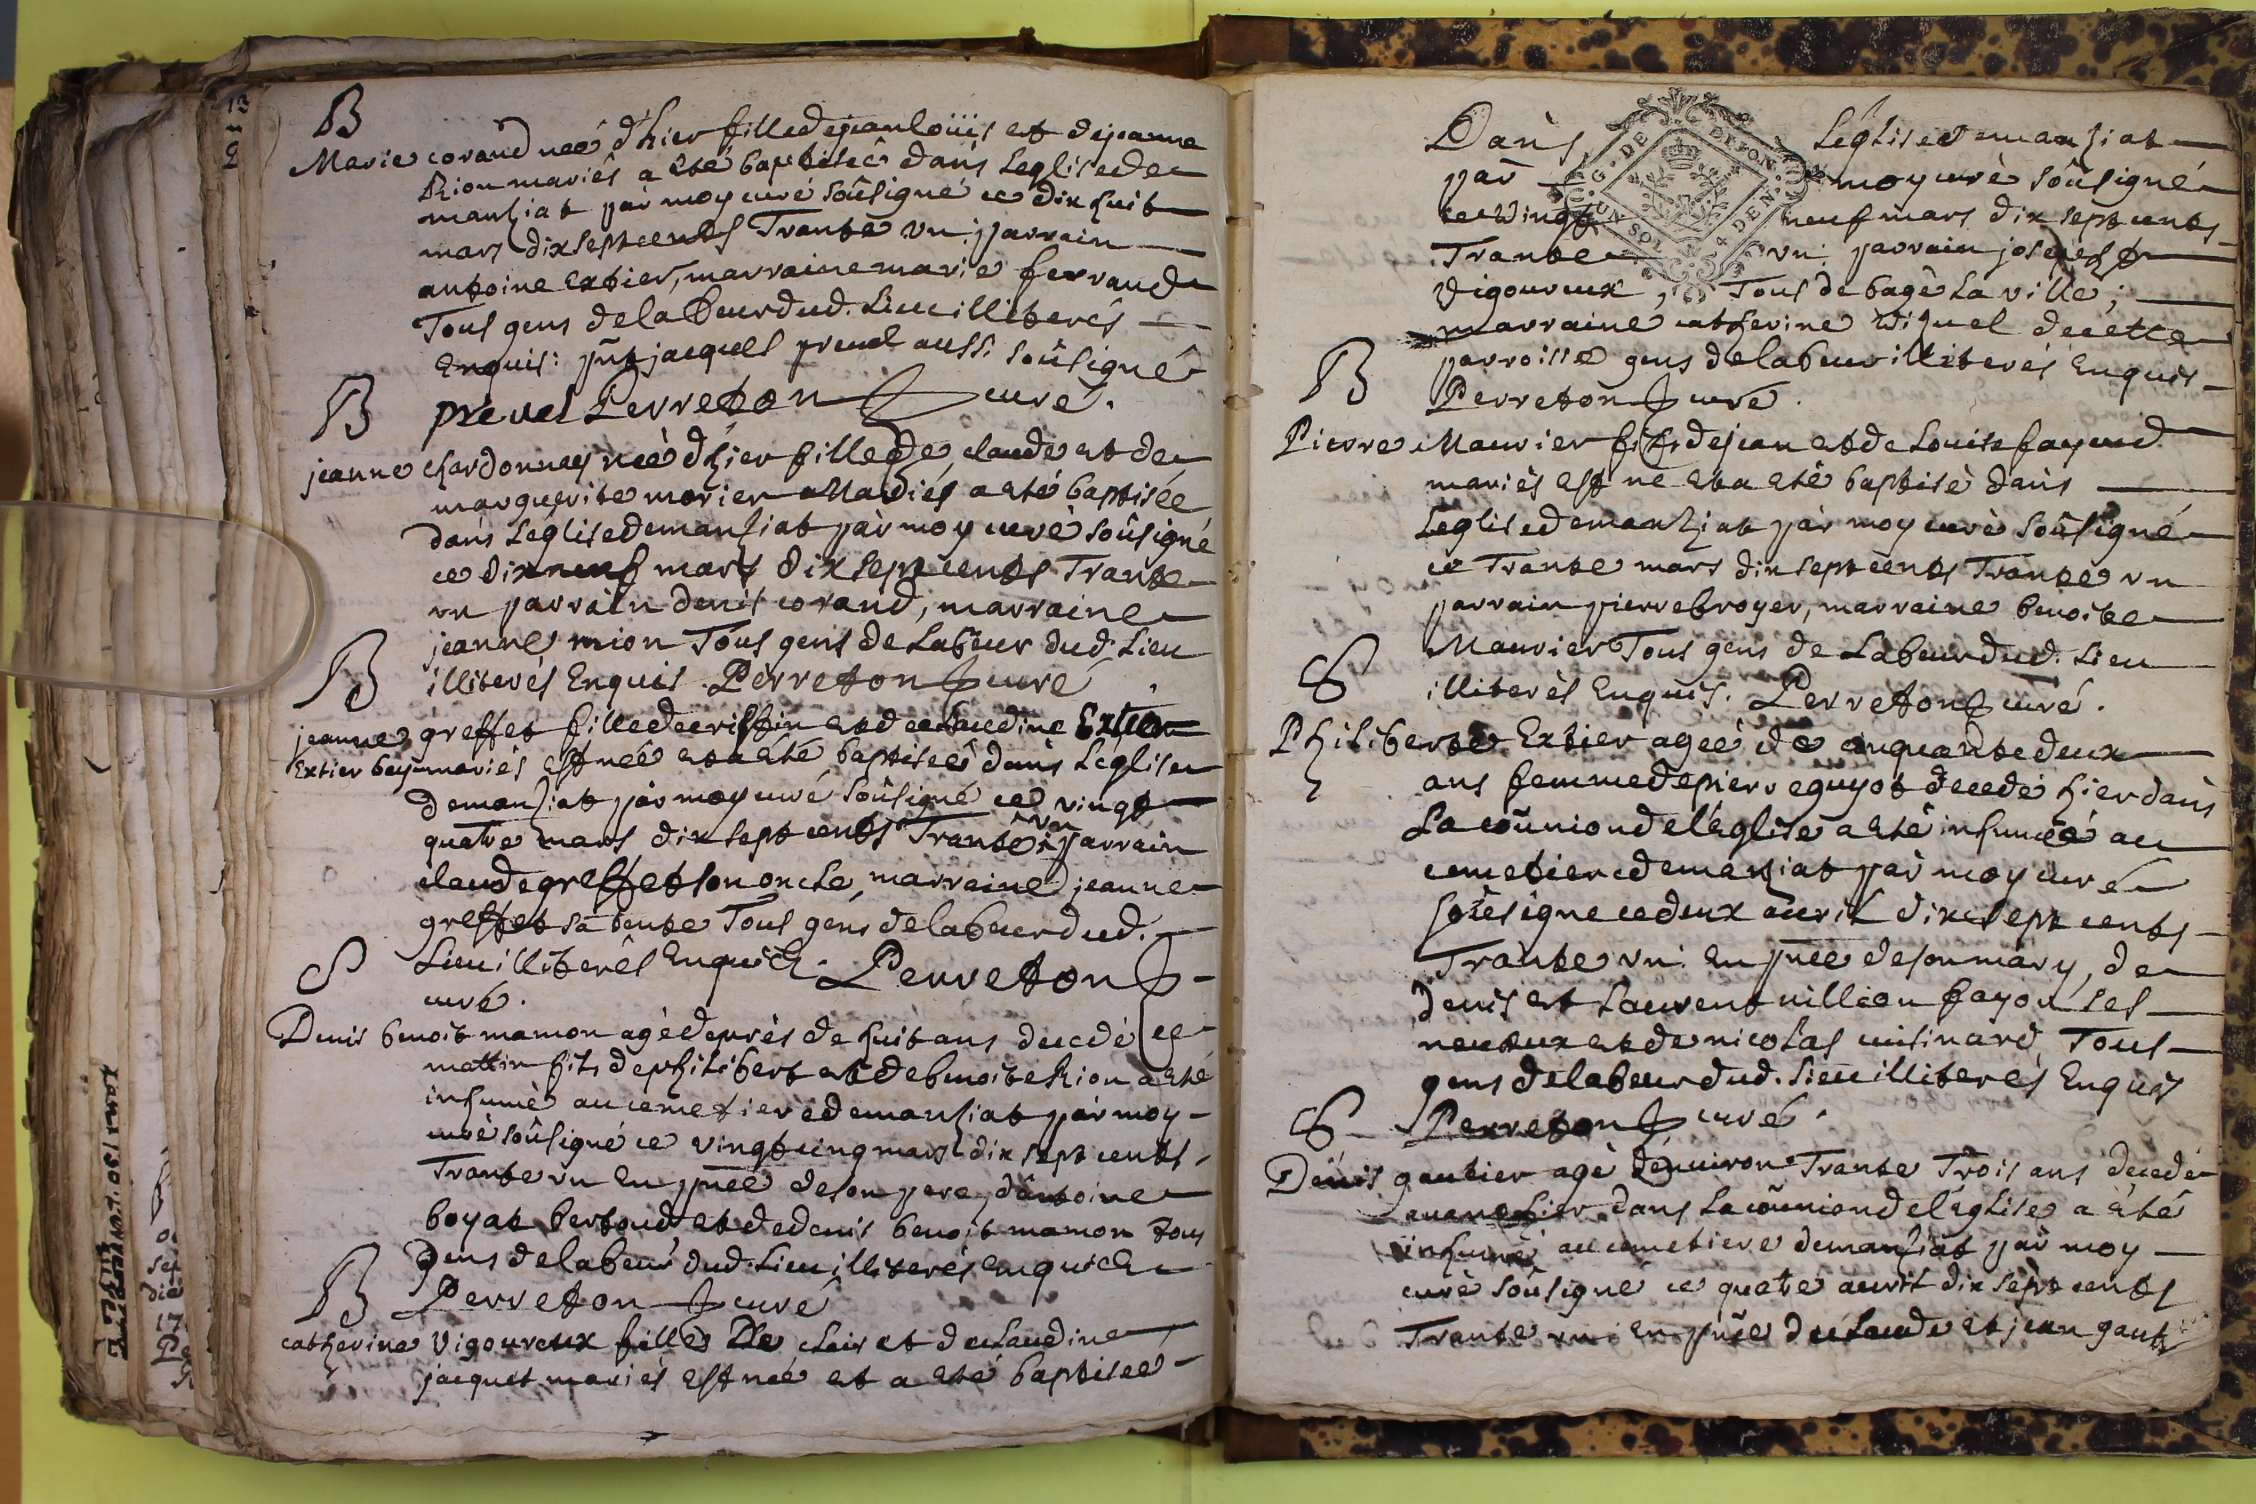 B
Marie corand née d'hier fille de jean loüis et de jeanne
Rion mariés a eté baptisée dans Leglise de
manziat par moy curé soûsigné ce dix huit
mars dix sept cents Trante vn: parrain
antoine extier, marraine marie ferraud
Tous gens de labeur dud. Lieu illiterés
Enquis: pñt jacques preuel aussi soûsigné
B
preuel Perreton curé.
jeanne chardonnay née d'hier fille de claude et de
marguerite morier Mariés a eté baptisée
dans Leglise de manziat par moy curé soûsigné
ce dix neuf mars dix sept cents Trante
vn parrain denis corand, marraine
jeanne rion Tous gens de Labeur dud. Lieu
B
illiterés Enquis. Perreton curé.
jeanne greffet fille de crispin et de claudine Extier
Extier bey mariés est née et a eté baptisée dans Léglise
de manziat par moy curé soûsigné ce vingt
quatre mars dix sept cents Trante vn parrain
claude greffet son oncle, marraine jeanne
greffet sa tante Tous gens de labeur dud.
S
Lieu illiterés Enquis. Perreton
curé.
Denis benoit mamon agé de prés de huit ans decedé ce
mattin fils de philibert et de benoite Rion a eté
inhumé au cemetiere de manziat par moy
curé soûsigné ce vingt cinq mars dix sept cents
Trante vn En pñce de son pere, d'antoine
boyat bertoud et de denis benoit mamon tous
gens de labeur dud. Lieu illiterés enquis
B
Perreton curé
catherine Vigoureux fille De clair et de claudine
jacquet mariés est née et a eté baptisée
Dans Léglise de manziat
par moy curé soûsigné
ce vingt neuf mars dix sept cents
Trante vn: parrain joseph
Vigoureux, Tous de bagé La ville;
marraine catherine de cette
parroisse gens de labeur illiterés Enquis
B
Perreton curé.
Pierre Maurier fils de jean et de Louise fayend
mariés est né et a eté baptisé dans
Léglise de manziat par moy curé soûsigné
ce Trante mars dix sept cents Trante vn
parrain pierre broyer, marraine benoite
Maurier Tous gens de Labeur dud. Lieu
S
illiterés Enquis. Perreton curé.
Philiberte Extier agée de cinquante deux
ans femme de pierre guyot decedé hier dans
La coñunion de l'Eglise a eté inhumée au
cemetiere de manziat par moy curé
soûsigné ce deux auril dix sept cents
Trante vn: En pñce de son mary, de
denis et Laurent uillion fayon ses
neueux et de nicolas cuisinard Tous
gens de labeur dud. Lieu illiterés Enquis
S
Perreton curé.
Denis gautier agé d'enuiron Trante Trois ans decedé
auant hier dans La coñunion de l'Eglise a eté
inhumé au cemetiere de manziat par moy
curé soûsigné ce quatre auril dix sept cents
Trante vn: En pñce de claude et jean gaut
G. DE DIJON.
UN SOL 4 DEN.